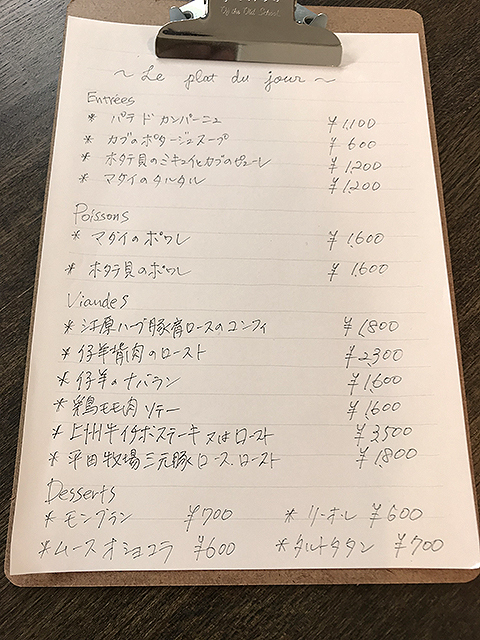 Of the Old School
~ Le plat du jour ~
Entrées
* パテ ド カンパーニュ ¥1,100
* カブのポタージュスープ ¥600
* ホタテ貝のミキュイとカブのピューレ ¥1,200
* マダイのタルタル ¥1,200
Poissons
* マダイのポワレ ¥1,600
* ホタテ貝のポワレ ¥1,600
Viandes
* ハーブ豚肩ロースのコンフィ ¥1,800
* 仔羊背肉のロースト ¥2,300
* 仔羊のナバラン ¥1,600
* 鶏モモ肉 ソテー ¥1,600
* 上州牛イチボステーキ又はロースト ¥3,500
* 平田牧場三元豚ロース.ロースト ¥1,800
Desserts
* モンブラン ¥700 * リーオレ ¥600
* ムースオショコラ ¥600 * タルトタタン ¥700